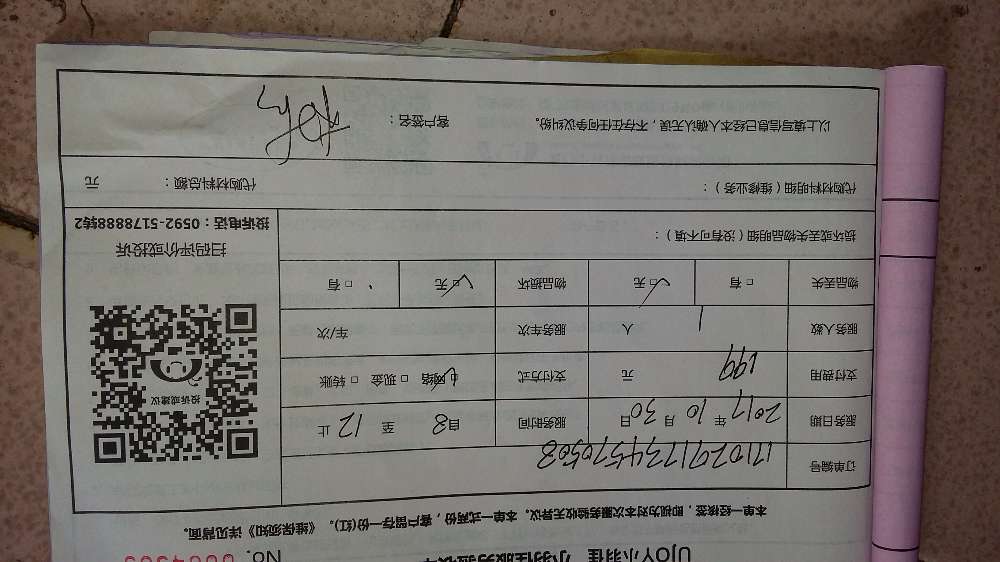 UJOY小羽佳 小羽佳服务验收单 No.
本单一经核签，即视为对本次服务验收无异议。本单一式两份，客户留存一份(红)。《维保须知》详见背面。
订单编号 17102917345770508
服务日期 2017 年 10 月 30 日 服务时间 自 8 至 12 止
支付费用 199 元 支付方式 □网络 □现金 □转账
服务人数 1 人 服务车次 车/次
物品丢失 □有 □无 物品损坏 □无 □有
损坏或丢失物品明细（没有可不填）：
代购材料明细（维修业务）： 代购材料总额： 元
以上填写信息已经本人确认无误，不存在任何争议纠纷。 客户签名：
投诉或建议
扫码评价或投诉
投诉电话：0592-5178888转2